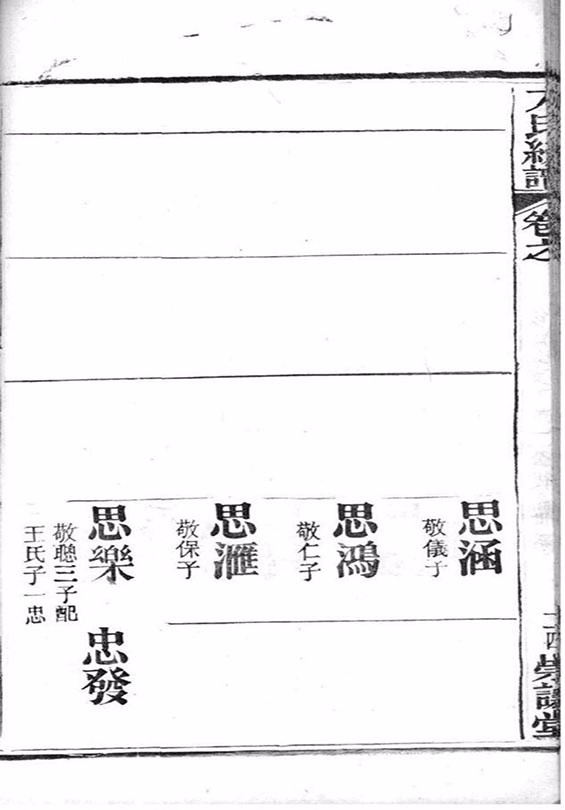 卷之
思涵
敬儀子
思鴻
敬仁子
思滙
敬保子
思樂
敬聰三子配
王氏子一忠
忠發